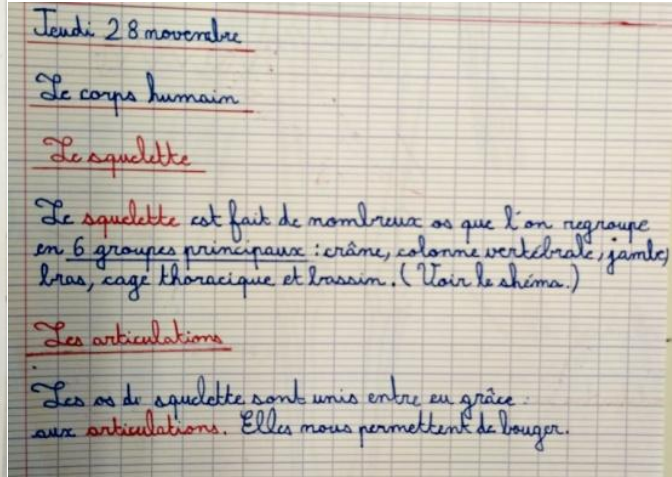 Jeudi 28 novembre
Le corps humain
Le squelette
Le squelette est fait de nombreux os que l'on regroupe
en 6 groupes principaux : crâne, colonne vertébrale, jambe,
bras, cage thoracique et bassin. (Voir le shéma.)
Les articulations
Les os de squelette sont unis entre eu grâce
aux articulations. Elles nous permettent de bouger.